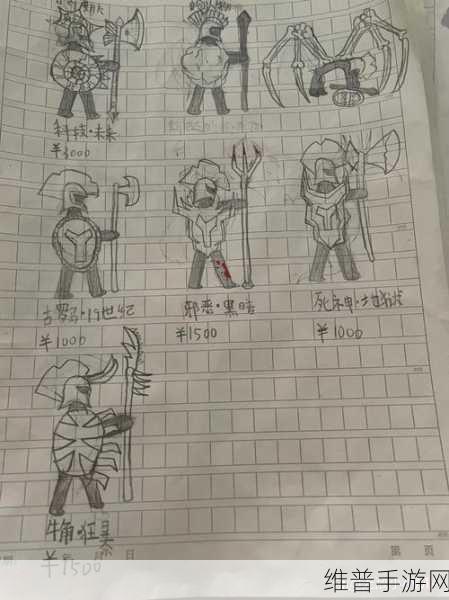 科技·未来
¥3000
古罗马·19世纪
¥1000
邪恶·黑暗
¥1500
死亡申·地狱
¥1000
牛角·狂暴
¥1500
月 日
第 页
维普手游网